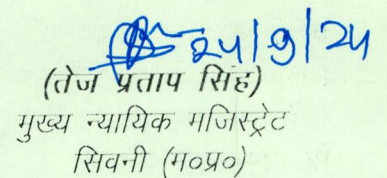 24/9/24
(तेज प्रताप सिंह)
मुख्य न्यायिक मजिस्ट्रेट
सिवनी (म०प्र०)